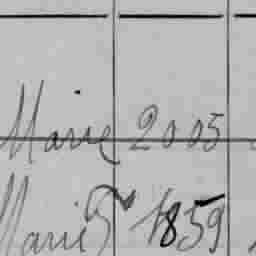 Marie 2005
Marie 1859